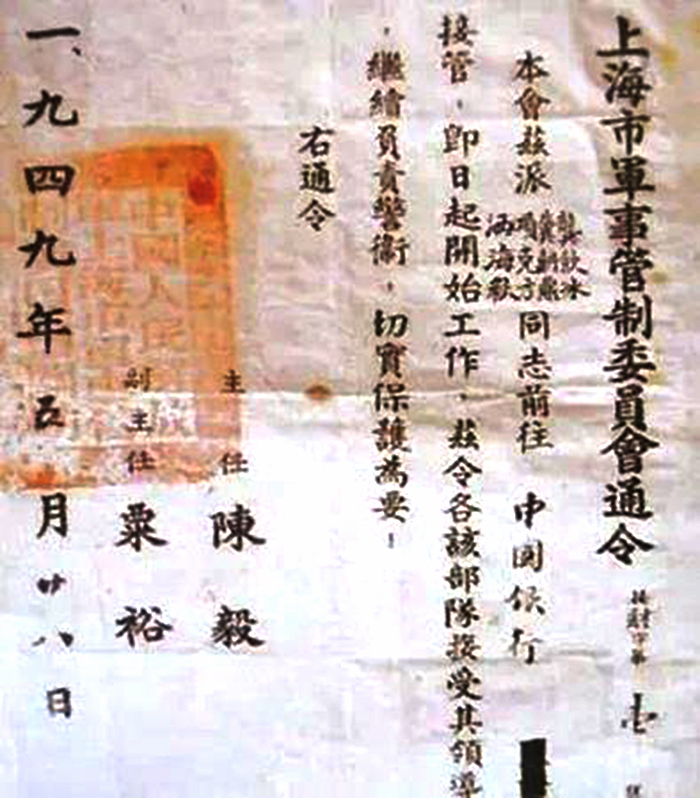 上海市軍事管制委員會通令
壹
本會茲派
龔飲冰
項克方
同志前往 中国银行
接管,即日起開始工作,茲令各該部隊接受其領導
,繼續負責警衛,切實保護為要!
右通令
主任 陳毅
副主任 粟裕
一、九四九年五月廿八日